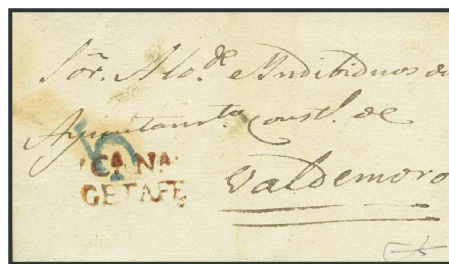 Sor. Alc.de e Yndibiduos de
Ayuntamto. Constl. de
CANA
GETAFE
Valdemoro